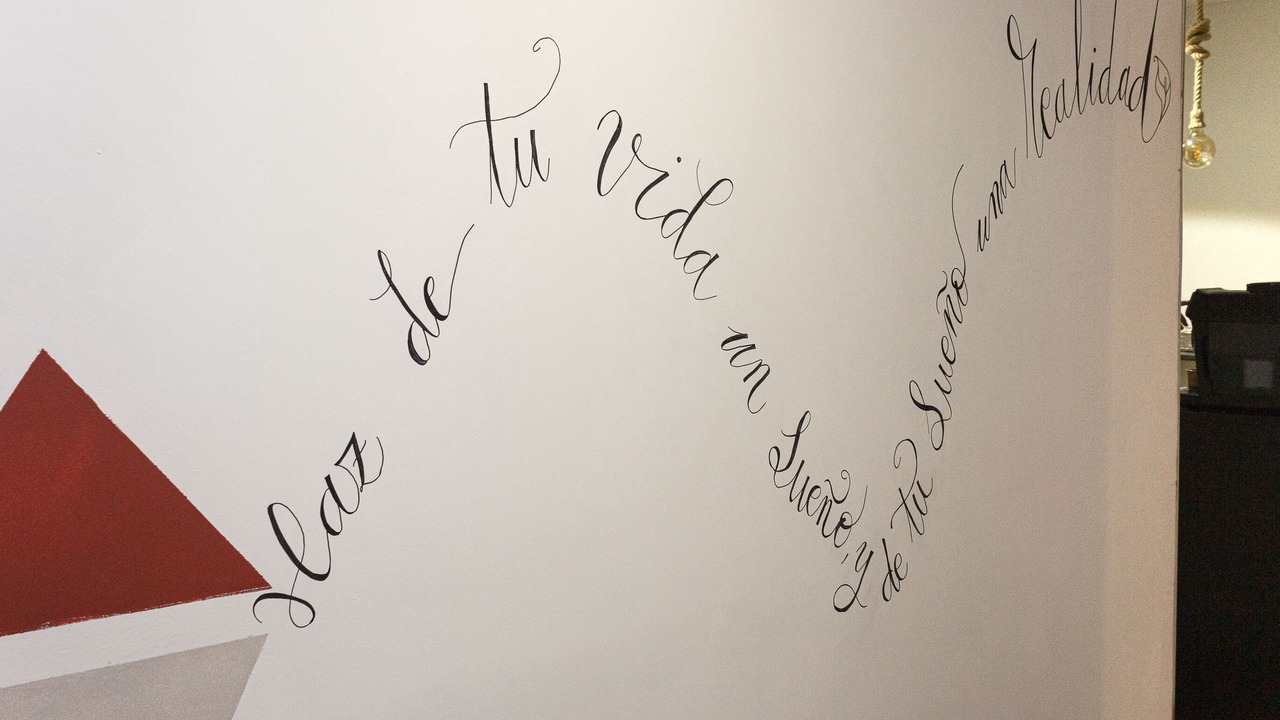 Haz de tu Vida un Sueño, y de tu Sueño una Realidad